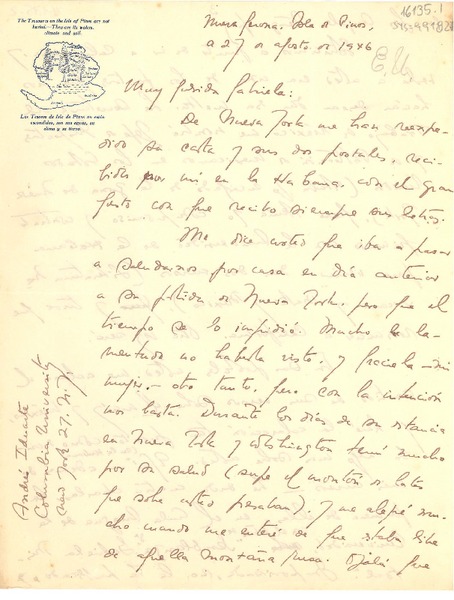 The Treasures on the Isle of Pines are not
buried.—They are its waters,
climate and soil.
Los Tesoros de Isla de Pinos no están
escondidos, son sus aguas, su
clima y su tierra.
16135.1
Nueva Gerona. Isla de Pinos,
a 27 de agosto de 1946
Muy querida Gabriela:
De Nueva York me han reexpe-
dido su carta y sus dos postales, reci-
bidas por mí en la Habana, con el gran
gusto con que recibo siempre sus letras.
Me dice usted que iba a pasar
a saludarnos por casa en día anterior
a su partida de Nueva York, pero que el
tiempo se lo impidió. Mucho he la-
mentado no haberla visto, y Graciela -mi
mujer- otro tanto, pero con la intención
nos basta. Durante los días de su estancia
en Nueva York y Washington temí mucho
por su salud (supe el montón de latas
que sobre usted pesaban). Y me alegré mu-
cho cuando me enteré de que estaba libre
de aquella montaña rusa. Ojalá que
Andrés Iduarte
Columbia University
New York 27. N.Y.